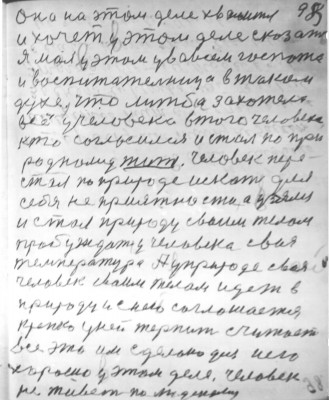 она на этом деле хвалится 985
и хочет у этом деле сказать
Я мол у этом у вас есем госпожа
и воспитательница в таком
духе, что либо захотело
у человека в того человека
кто согласился и стал по при
родному жит, человек пере
стал по природе искать для
себя не приятности, а взял
и стал природу своим телом
пробуждать у человека своя
температура А у природе своя
человек своим телом идет в
природу и с нею соглошается
крепко у ней терпит считает
все это им сделоно для него
хорошо у этом деле, человек
не живет по людскому